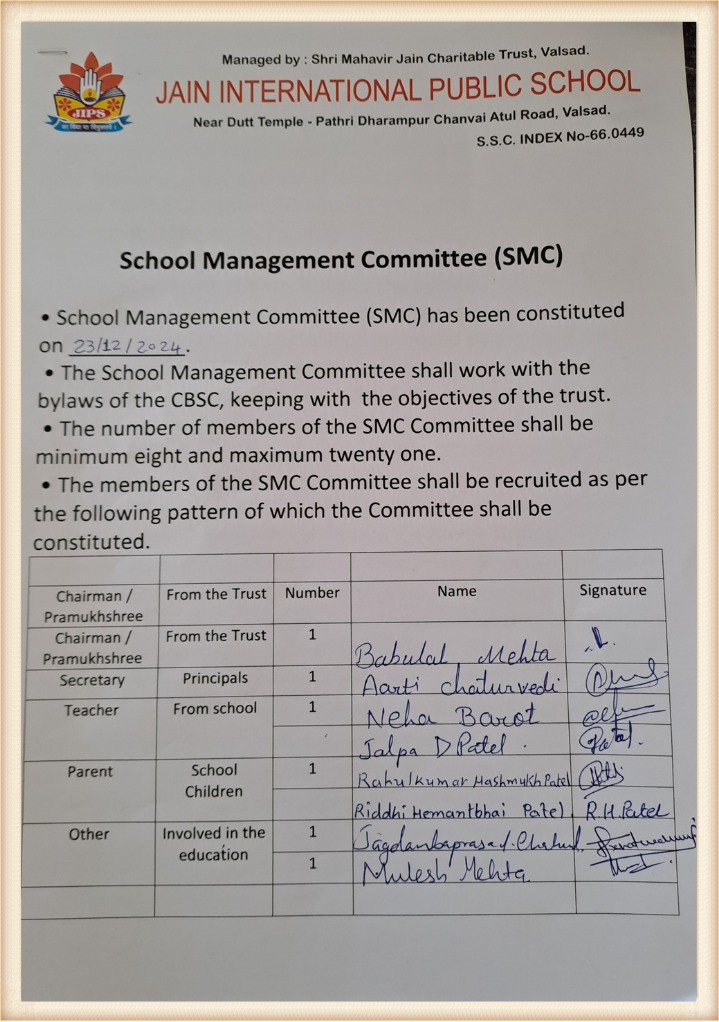 Managed by : Shri Mahavir Jain Charitable Trust, Valsad.
JAIN INTERNATIONAL PUBLIC SCHOOL
Near Dutt Temple - Pathri Dharampur Chanvai Atul Road, Valsad.
S.S.C. INDEX No-66.0449
JIPS
School Management Committee (SMC)
• School Management Committee (SMC) has been constituted
on 23/12/2024.
• The School Management Committee shall work with the
bylaws of the CBSC, keeping with the objectives of the trust.
• The number of members of the SMC Committee shall be
minimum eight and maximum twenty one.
• The members of the SMC Committee shall be recruited as per
the following pattern of which the Committee shall be
constituted.
Chairman / From the Trust Number Name Signature
Pramukhshree
Chairman / From the Trust 1 Babulal Mehta
Pramukhshree
Secretary Principals 1 Aarti chaturvedi
Teacher From school 1 Neha Barot
Jalpa D Patel. Patel.
Parent School 1 Rahulkumar Hashmukh Patel
Children Riddhi Hemantbhai Patel R.H.Patel
Other Involved in the 1 Jagdambaprasad
education 1 Mulesh Mehta